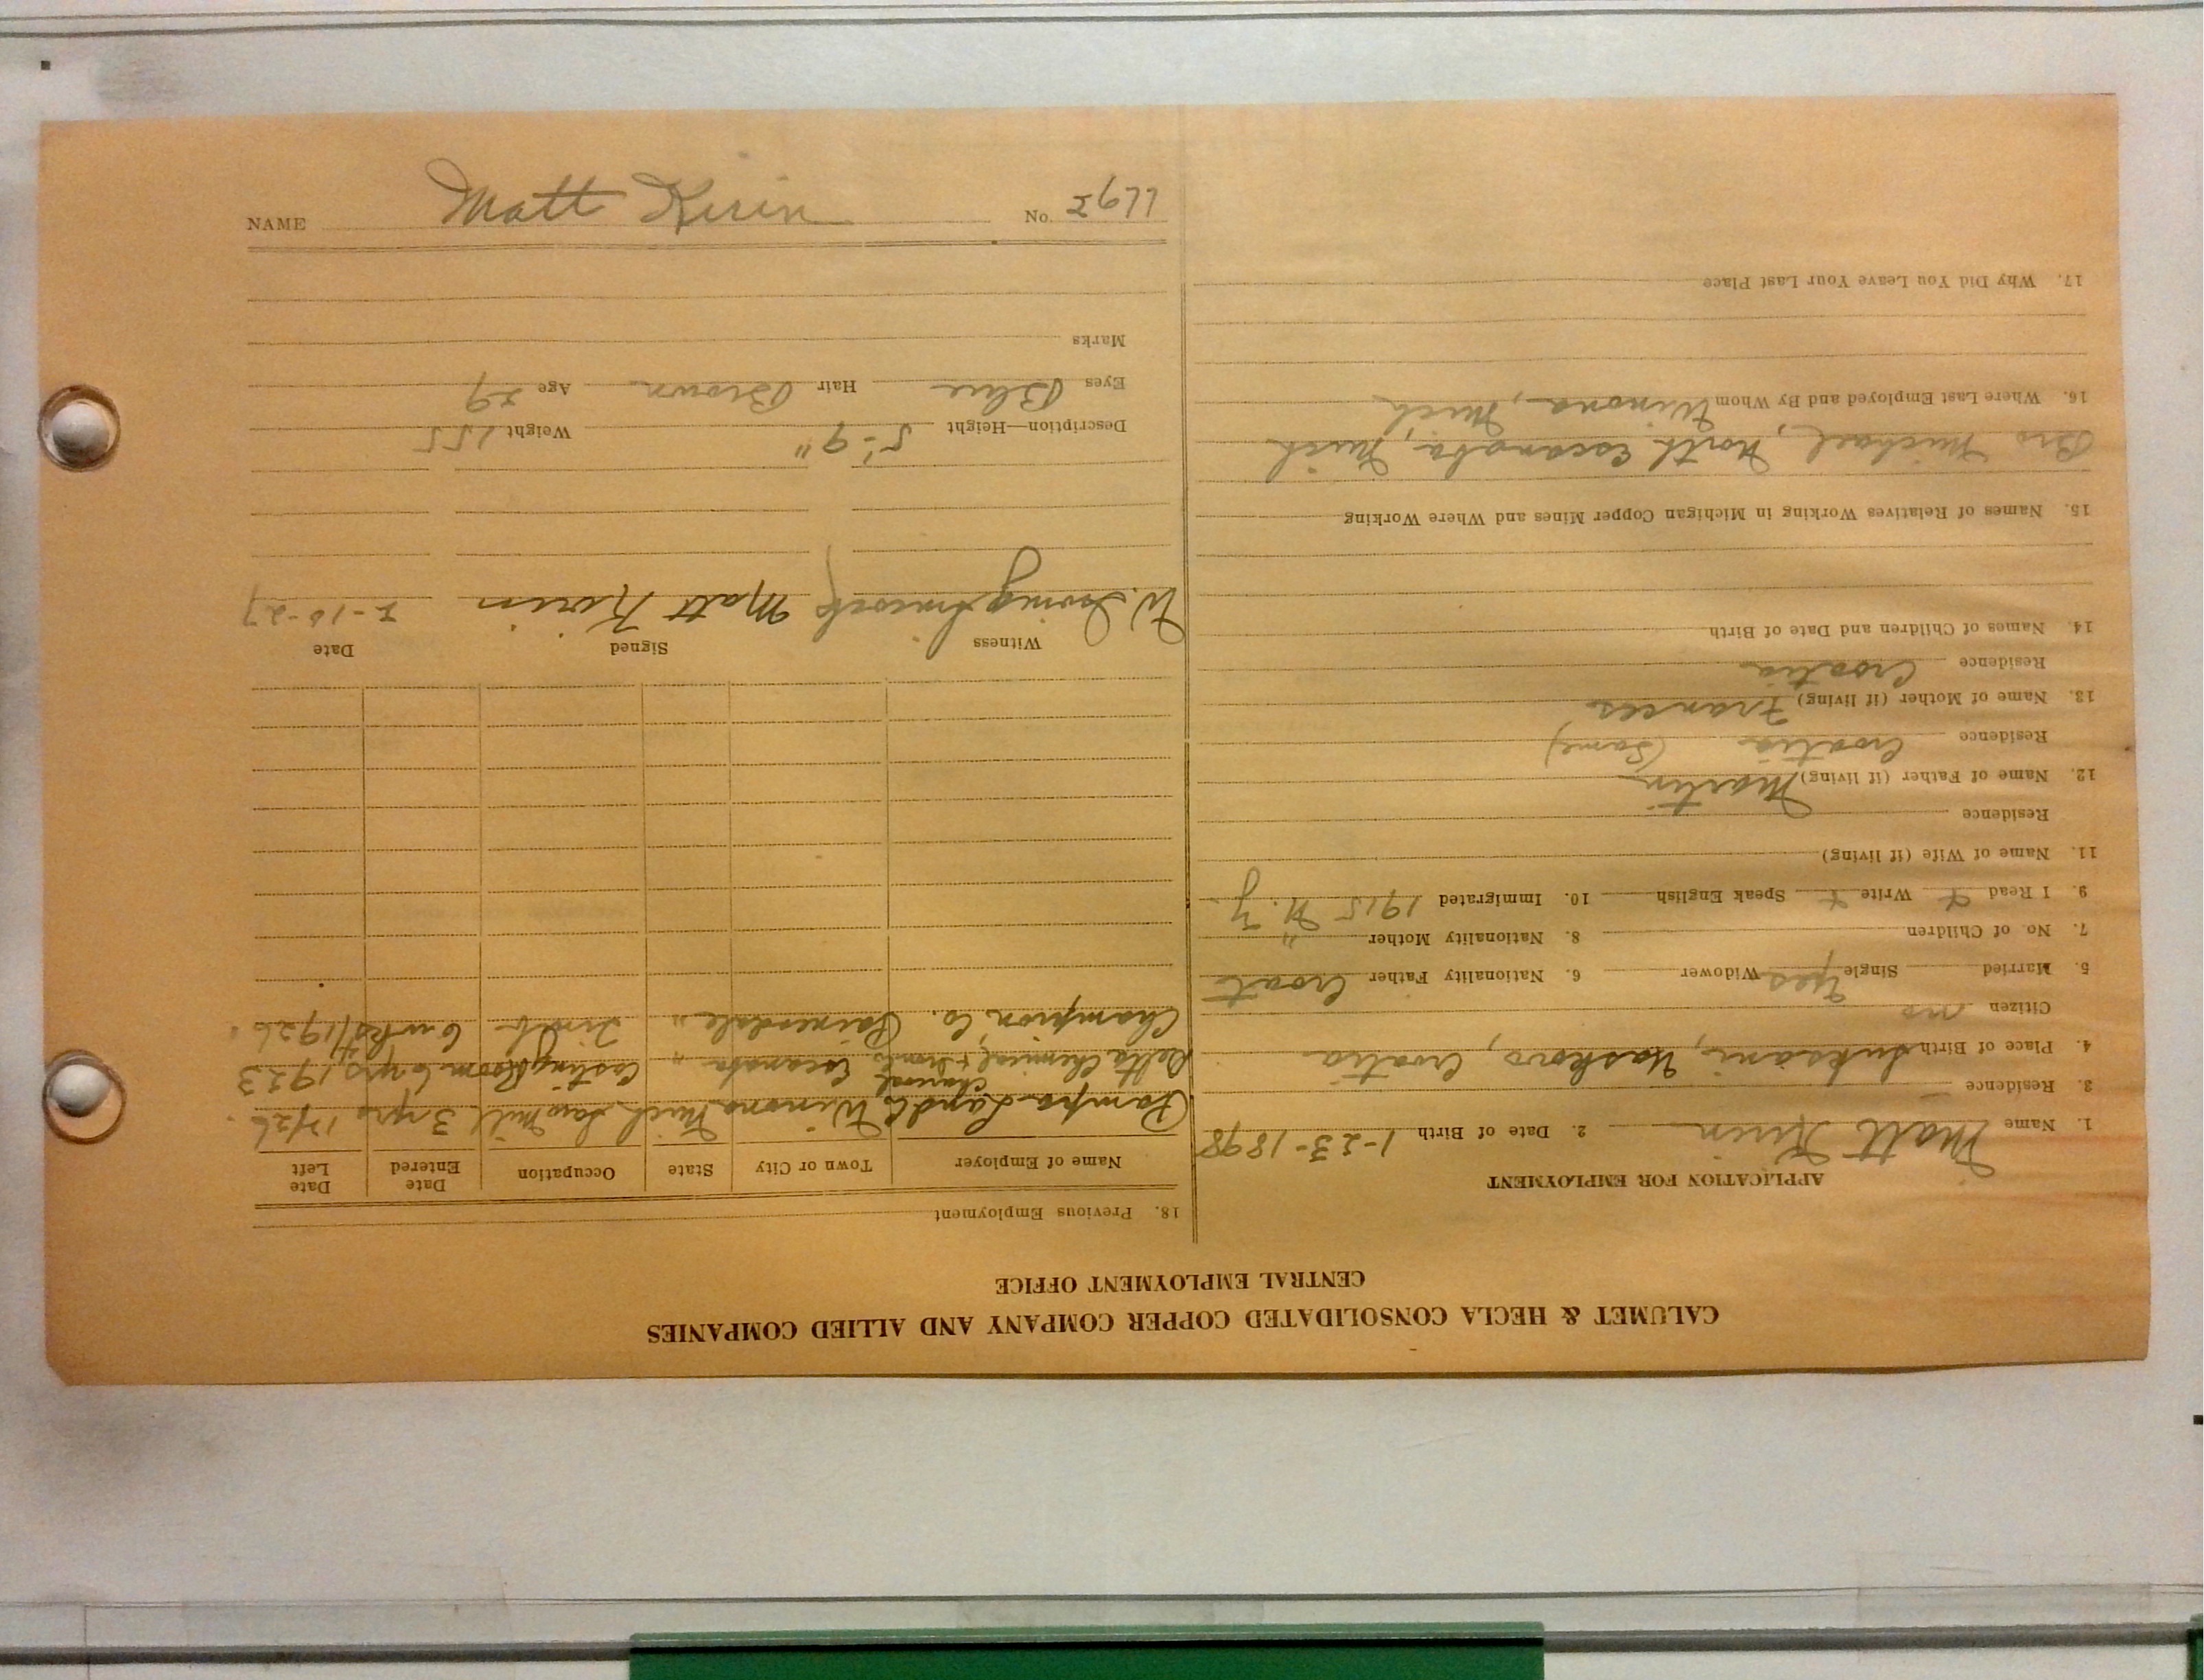 NAME Matt Kirin No. 2677
CALUMET & HECLA CONSOLIDATED COPPER COMPANY AND ALLIED COMPANIES
CENTRAL EMPLOYMENT OFFICE
APPLICATION FOR EMPLOYMENT
1. Name Matt Kirin 2. Date of Birth 1-23-1898
3. Residence
4. Place of Birth Croatia
Citizen no
5. Married Single Yes Widower 6. Nationality Father Croat
7. No. of Children 8. Nationality Mother "
9. I Read Write Speak English 10. Immigrated 1915 N.Y.
11. Name of Wife (if living)
Residence
12. Name of Father (if living) Martin
Residence Croatia (Same)
13. Name of Mother (if living) Frances
Residence Croatia
14. Names of Children and Date of Birth
15. Names of Relatives Working in Michigan Copper Mines and Where Working
Bro Michael, North Escanaba, Mich
16. Where Last Employed and By Whom Winona, Mich
17. Why Did You Leave Your Last Place
18. Previous Employment
Name of Employer Town or City State Occupation Date Entered Date Left
Winona Mich Saw Mill 3 yrs 12/26.
Delta Chemical & Escanaba " Casting Room 6 yrs 1923
Charcoal
Champion Co. Painesdale " 6 wks 1926.
Witness Signed Date
W. Irving Matt Kirin 2-10-27
Description—Height 5'-9" Weight 155
Eyes Blue Hair Brown Age 29
Marks